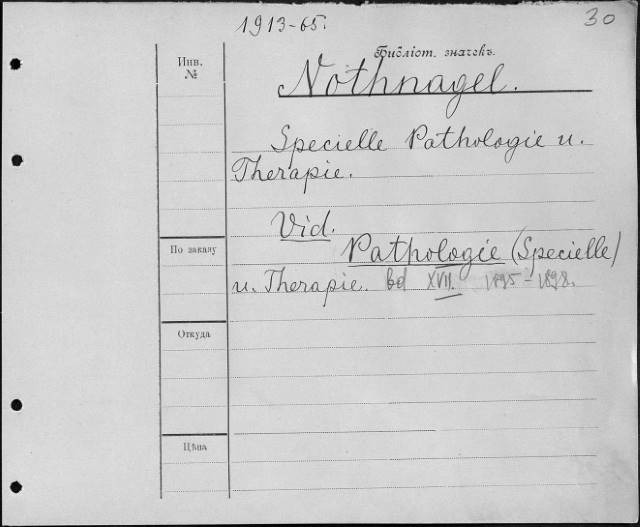 1913-65.
30
Библіот. значекъ.
Инв.
№
Nothnagel.
Specielle Pathologie u.
Therapie.
Vid.
По заказу
Pathologie (Specielle)
u. Therapie. bd XVII. 1895-1898.
Откуда
Цѣна